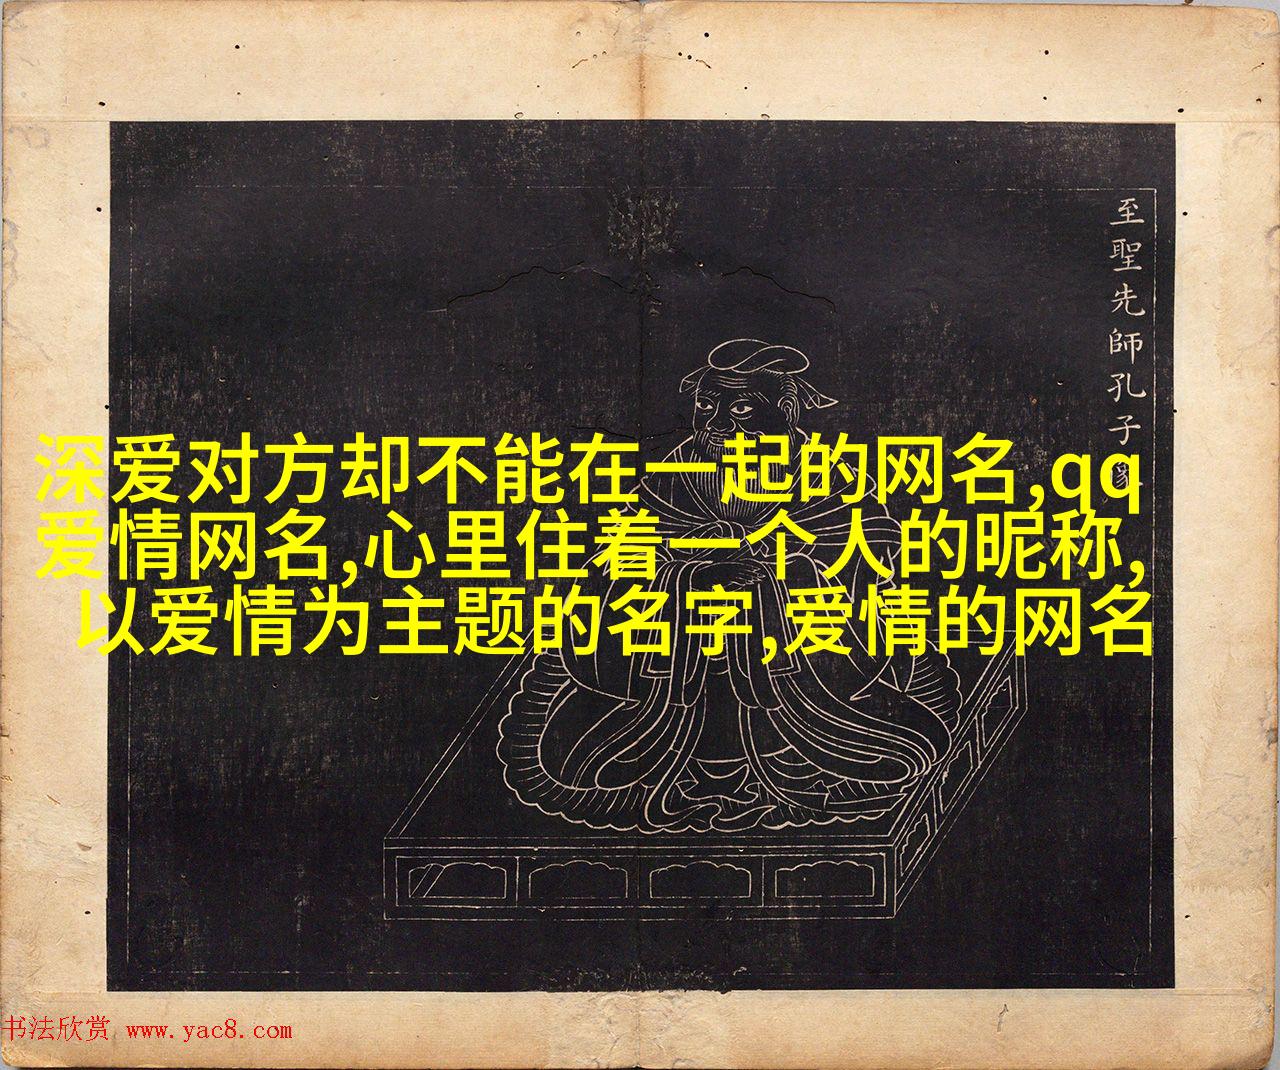 至聖先師孔子像
深爱对方却不能在一起的网名,qq
爱情网名,心里住着一个人的昵称,
以爱情为主题的名字,爱情的网名
书法欣赏 www.yac8.com